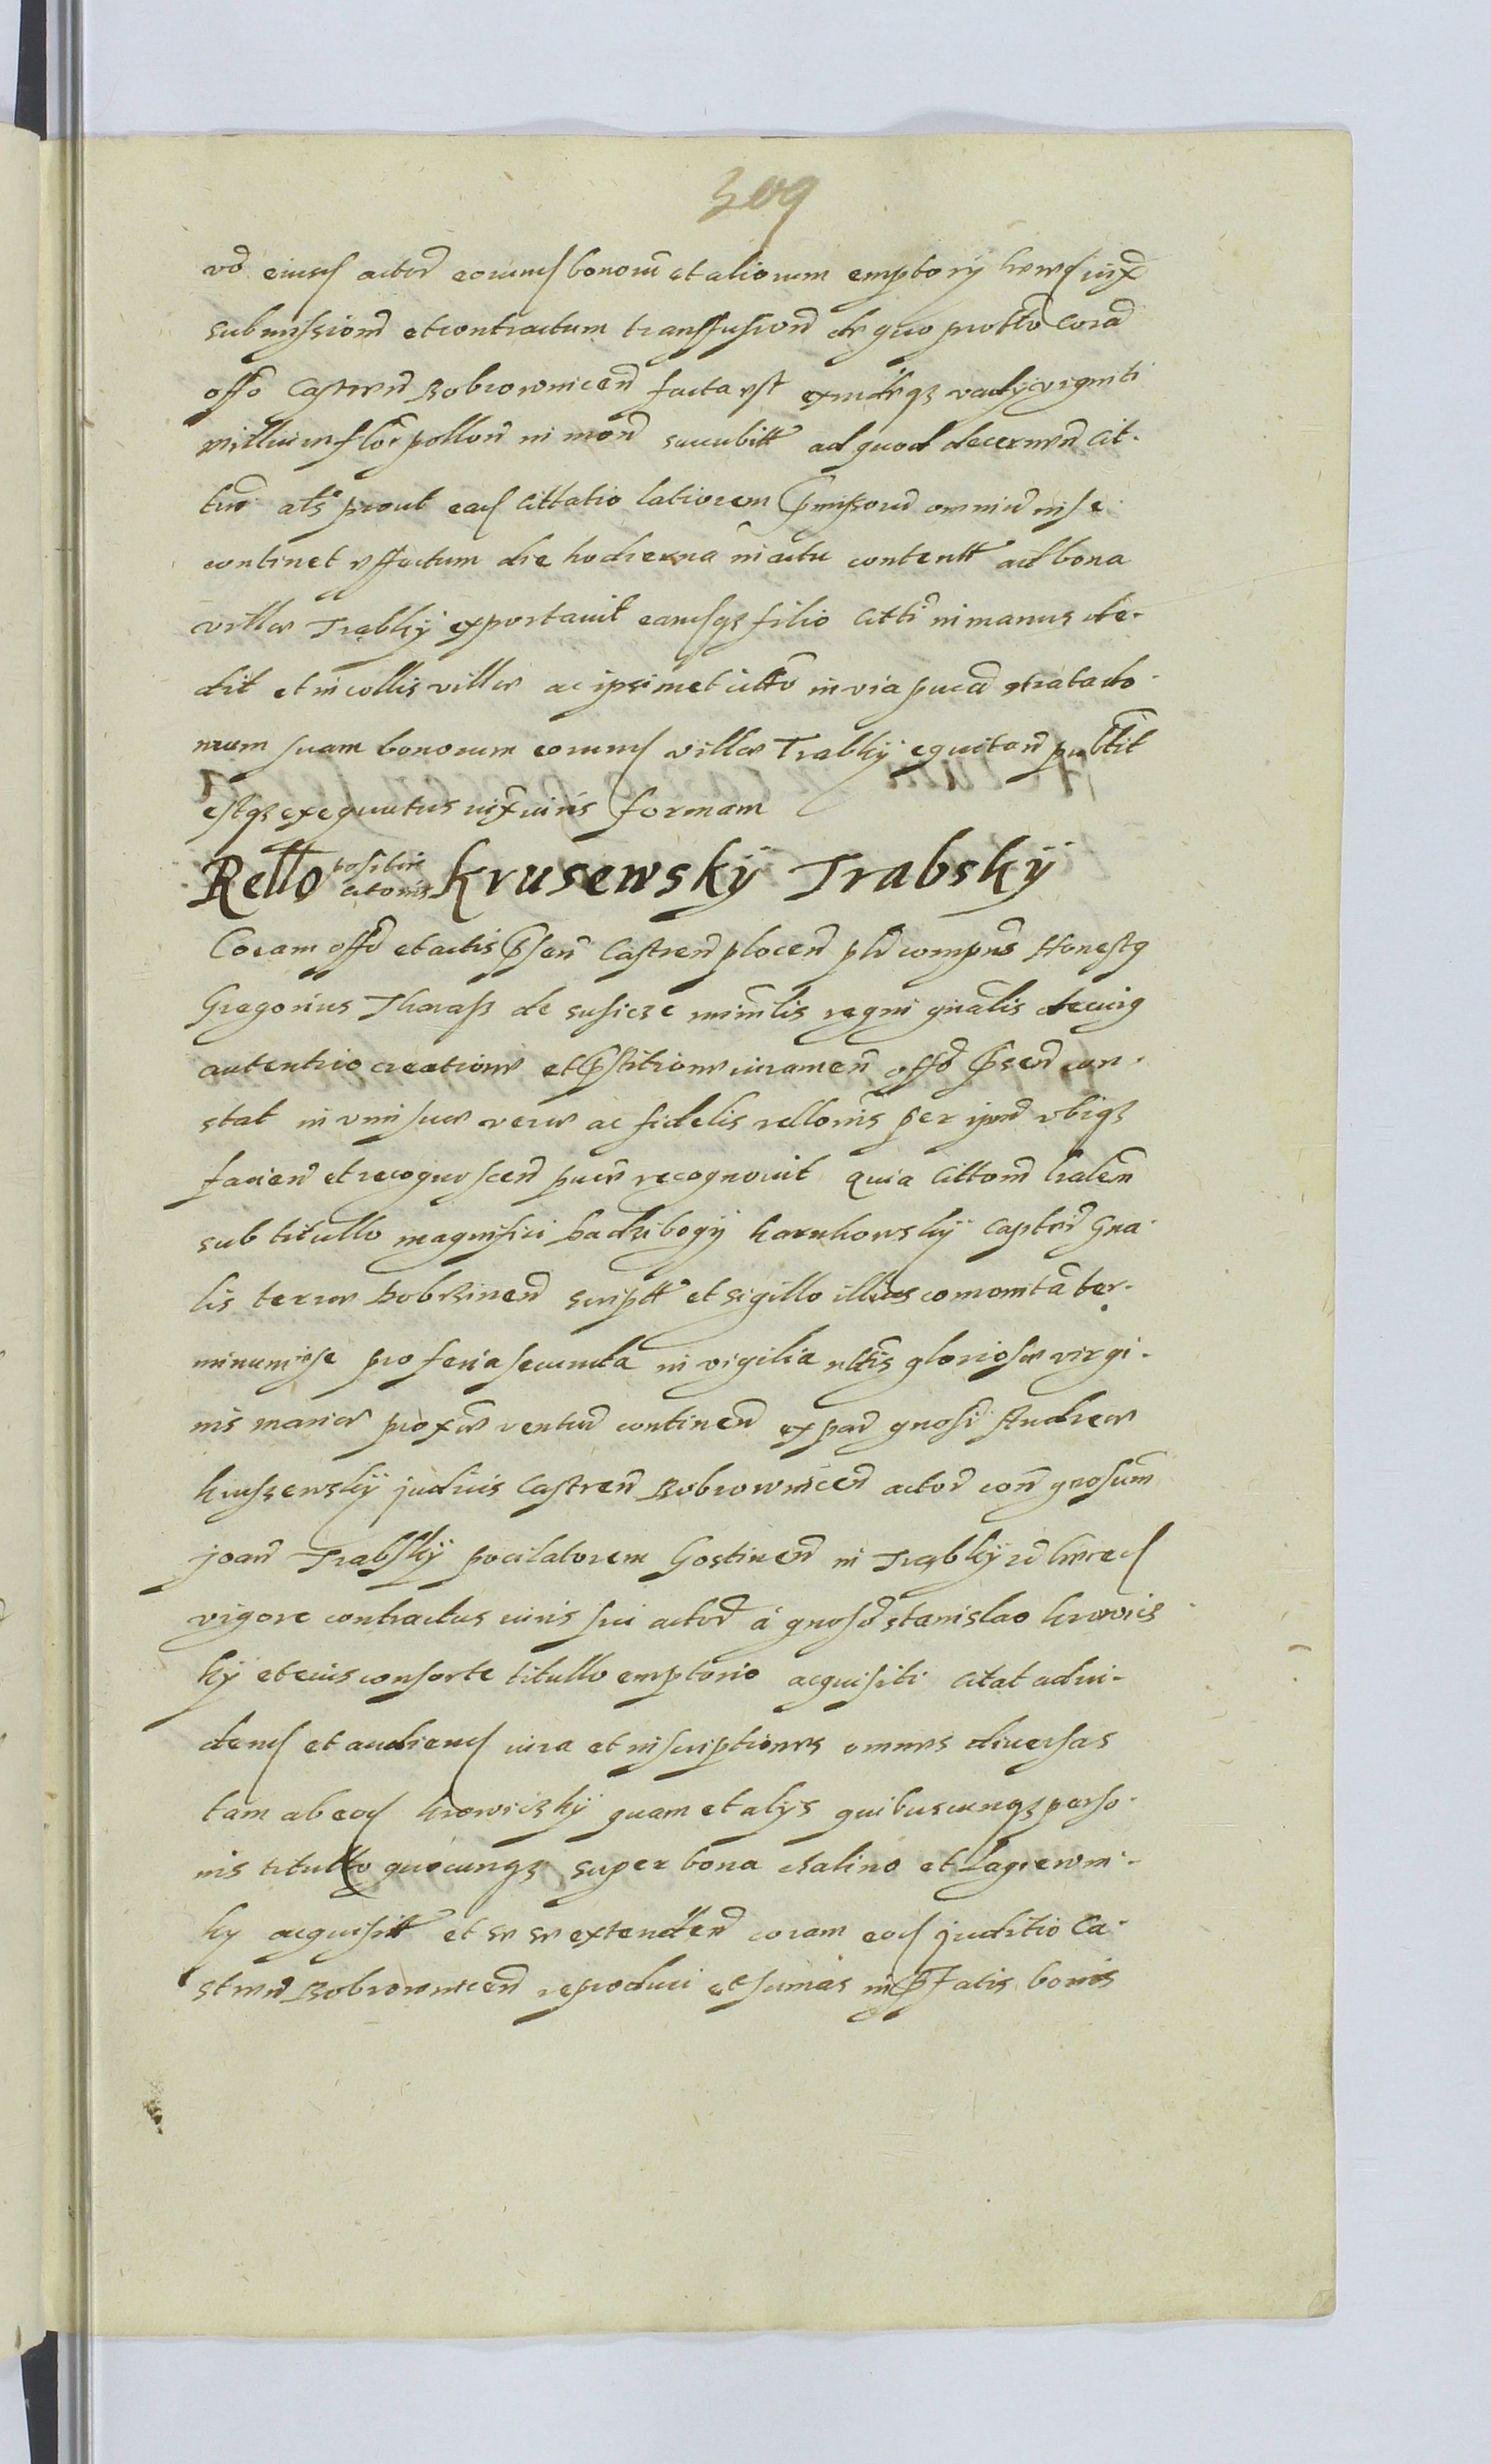 309
vd eiusd actor eorumd bonorum et aliorum emptory hered iuxta
submissiom et contractum transfusion de quo protto cora
offo Castren Bobrownicen facta est exindeqz vadys viginti
millium flor pollon in mon succubitt ad quod decernen cit-
tur als prout ead cittatio latiorem pmissor omniu in se
continet effectum die hodierna in actu contentt ad bona
villae Trabky exportavit eamqz filio citti in manus de-
dit et incollis villae ac ipsimet citto in via puca strata do-
mum suam bonorum eorumd villae Trabky equitan publit
estqz exequutus iux iuris formam
Rello positis citonis Krusewsky Trabsky
Coram offo et actis psen Castren plocen pli compns Honestq
Gregorius Tharass de susicze minlis regni gnalis de cuiq
autentico creatione et pstitione iuramen offo psen con-
stat in vim suae verae ac fidelis rellonis per ipm vbiqz
facien et recognoscen puce recognovit quia cittom tralem
sub titullo magnifici hadzibogy karnkowsky capitei Gna-
lis terrae dobrzinen scriptt et sigillo illius comonita ter-
minum in se pro feria secunda in vigilia nttis gloriosae virgi-
nis mariae proxae ventur continen ex par gnosi Andreae
kruszewsky judicis Castren Bobrownicen actor con gnosum
joan Trabsky pocilatorem Gostinen in Trąbky hered
vigore contractus iuris sui actor a gnoso stanislao krowicz
ky et eius consorte titullo emptorio acquisiti citat ad vi-
dend et audiend iura et inscriptiones omnes diversas
tam ab eod krowiczky quam et alys quibuscunqz perso-
nis titullo quocunqz super bona chalino et Lagiewni-
ky acquisitt et se se extenden coram eod juditio Ca-
stren Bobrownicen reproduci et sumas in pfatis bonis